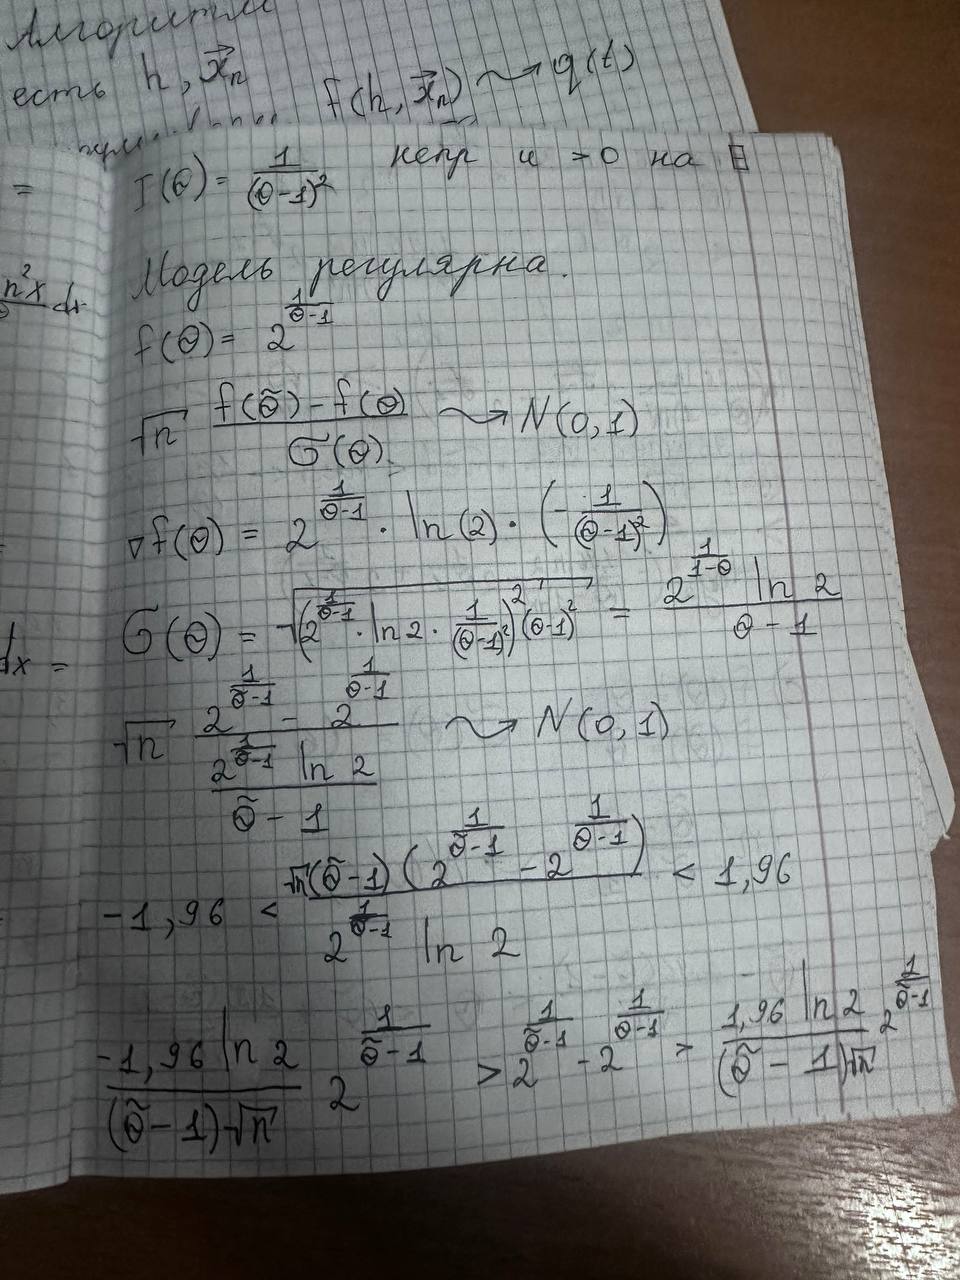 Алгоритм
есть h, x⃗ₙ
f(h, x⃗ₙ) ⤳ q(t)
I(θ) = 1/(θ-1)² непр и >0 на Θ
Модель регулярна.
f(θ) = 2^(1/(θ-1))
√n (f(θ̃) - f(θ))/σ(θ) ⤳ N(0,1)
∇f(θ) = 2^(1/(θ-1)) · ln(2) · (-1/(θ-1)²)
σ(θ) = √((2^(1/(θ-1)) · ln 2 · 1/(θ-1)²)² (θ-1)²) = 2^(1/(1-θ)) ln 2 / (θ - 1)
√n (2^(1/(θ̃-1)) - 2^(1/(θ-1))) / (2^(1/(θ̃-1)) ln 2 / (θ̃ - 1)) ⤳ N(0,1)
-1,96 < √n(θ̃-1)(2^(1/(θ̃-1)) - 2^(1/(θ-1))) / (2^(1/(θ̃-1)) ln 2) < 1,96
-1,96 ln 2 / ((θ̃-1)√n) 2^(1/(θ̃-1)) > 2^(1/(θ̃-1)) - 2^(1/(θ-1)) > 1,96 ln 2 / ((θ̃ - 1)√n) 2^(1/(θ̃-1))